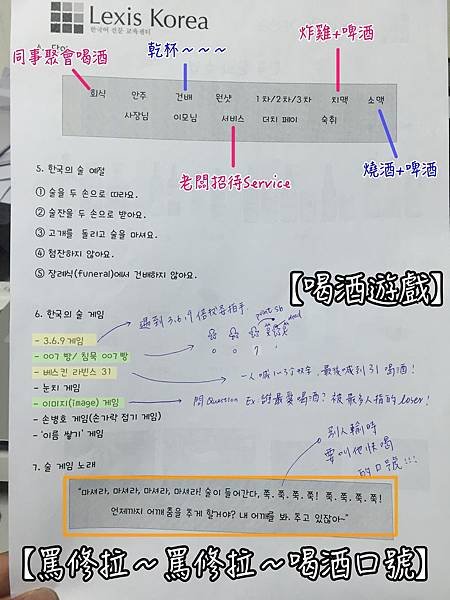 Lexis Korea
한국어 전문 교육센터
同事聚會喝酒
乾杯～～～
炸雞+啤酒
회식 안주 건배 원샷 1차/2차/3차 치맥 소맥
사장님 이모님 서비스 더치 페이 숙취
老闆招待Service
燒酒+啤酒
5. 한국의 술 예절
① 술을 두 손으로 따라요.
② 술잔을 두 손으로 받아요.
③ 고개를 돌리고 술을 마셔요.
④ 첨잔하지 않아요.
⑤ 장례식(funeral)에서 건배하지 않아요.
【喝酒遊戲】
6. 한국의 술 게임
- 3.6.9 게임
遇到3.6.9倍數要拍手
point sb
dead
- 007 빵/ 침묵 007빵
0 0 7
- 베스킨 라빈스 31
一人喊1~3個數字, 最後喊到31喝酒!
- 눈치 게임
- 이미지(image) 게임
問Question Ex: 誰最愛喝酒? 被最多人指的loser!
- 손병호 게임(손가락 접기 게임)
- '이름 쌓기' 게임
別人輸時
要叫他快喝
的口號!!!
7. 술 게임 노래
"마셔라, 마셔라, 마셔라, 마셔라! 술이 들어간다, 쭉. 쭉. 쭉. 쭉! 쭉. 쭉. 쭉. 쭉!
언제까지 어깨 춤을 추게 할거야? 내 어깨를 봐. 추고 있잖아~"
【罵修拉～罵修拉～喝酒口號】